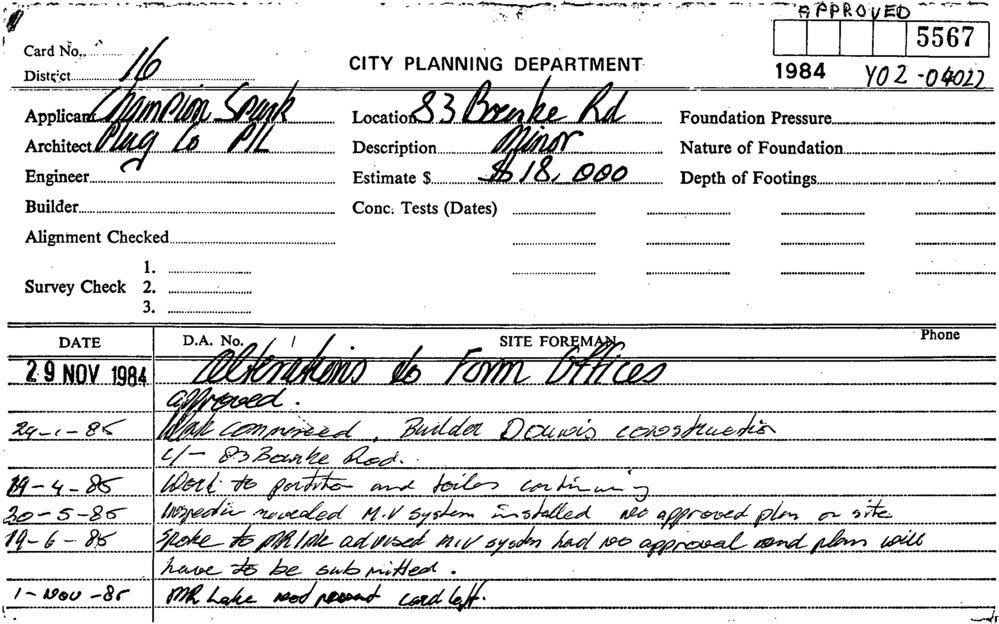 APPROVED
5567
Card No.
District 16
CITY PLANNING DEPARTMENT
1984 Y02-04022
Applicant Champion Spark Location 83 Bourke Rd Foundation Pressure
Architect Plug Co P/L Description Minor Nature of Foundation
Engineer Estimate $ $18,000 Depth of Footings
Builder Conc. Tests (Dates)
Alignment Checked
1.
Survey Check 2.
3.
DATE D.A. No. SITE FOREMAN Phone
29 NOV 1984 Alterations to Form Offices
approved.
29-1-85 Work commenced, Builder construction
c/- 83 Bourke Road.
19-4-85 Work to partition and toilet continuing
20-5-85 Inspection revealed M.V system installed no approved plan on site
19-6-85 Spoke to MR advised M.V system had no approval and plan will
have to be submitted.
1-Nov-85 MR Lake not present card left.